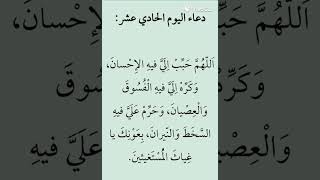 دعاء اليوم الحادي عشر:
اَللّهُمَّ حَبِّبْ إِلَيَّ فيهِ الإِحْسانَ،
وَكَرِّهْ إِلَيَّ فيهِ الْفُسُوقَ
وَالْعِصْيانَ، وَحَرِّمْ عَلَيَّ فيهِ
السَّخَطَ وَالنّيرانَ، بِعَوْنِكَ يا
غِياثَ الْمُسْتَغيثينَ.